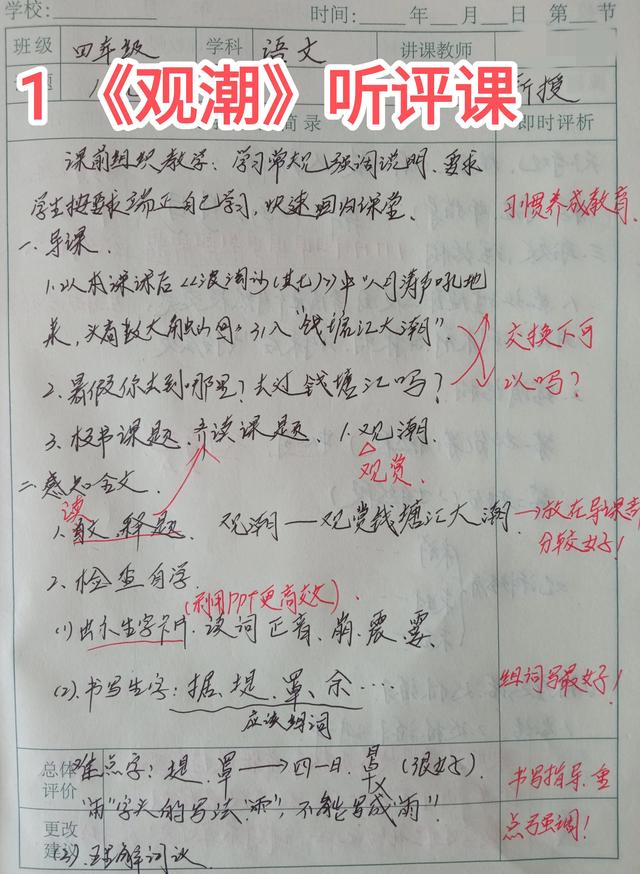 学校： 时间： 年 月 日 第 节
班级 四年级 学科 语文 讲课教师
1《观潮》听评课
新授
简录 即时评析
课前组织教学：学习常规强调说明，要求
学生按要求端正自己学习，快速回归课堂。
习惯养成教育
一、导课
1.以本课课后《浪淘沙(其七)》中"八月涛声吼地
来，头高数丈触山回"引入"钱塘江大潮"。
2.暑假你去到哪里？去过钱塘江吗？
交换下可以吗？
3.板书课题、齐读课题、1.观潮
观赏
二、感知全文
读
1. 文、释题、观潮——观赏钱塘江大潮
→放在导课部分较好！
2.检查自学
(利用PPT更高效)
(1)出示生字卡片、读词正音、崩、震、霎、
(2).书写生字：据、堤、罩、余……
应该组词
组词写最好！
总体评价
难点字：堤、罩——→四一日、旱（很好）
书写指导，重
"雨"字头的写法"⻗"，不能写成"雨"！
点强调！
更改建议
(2).理解词议